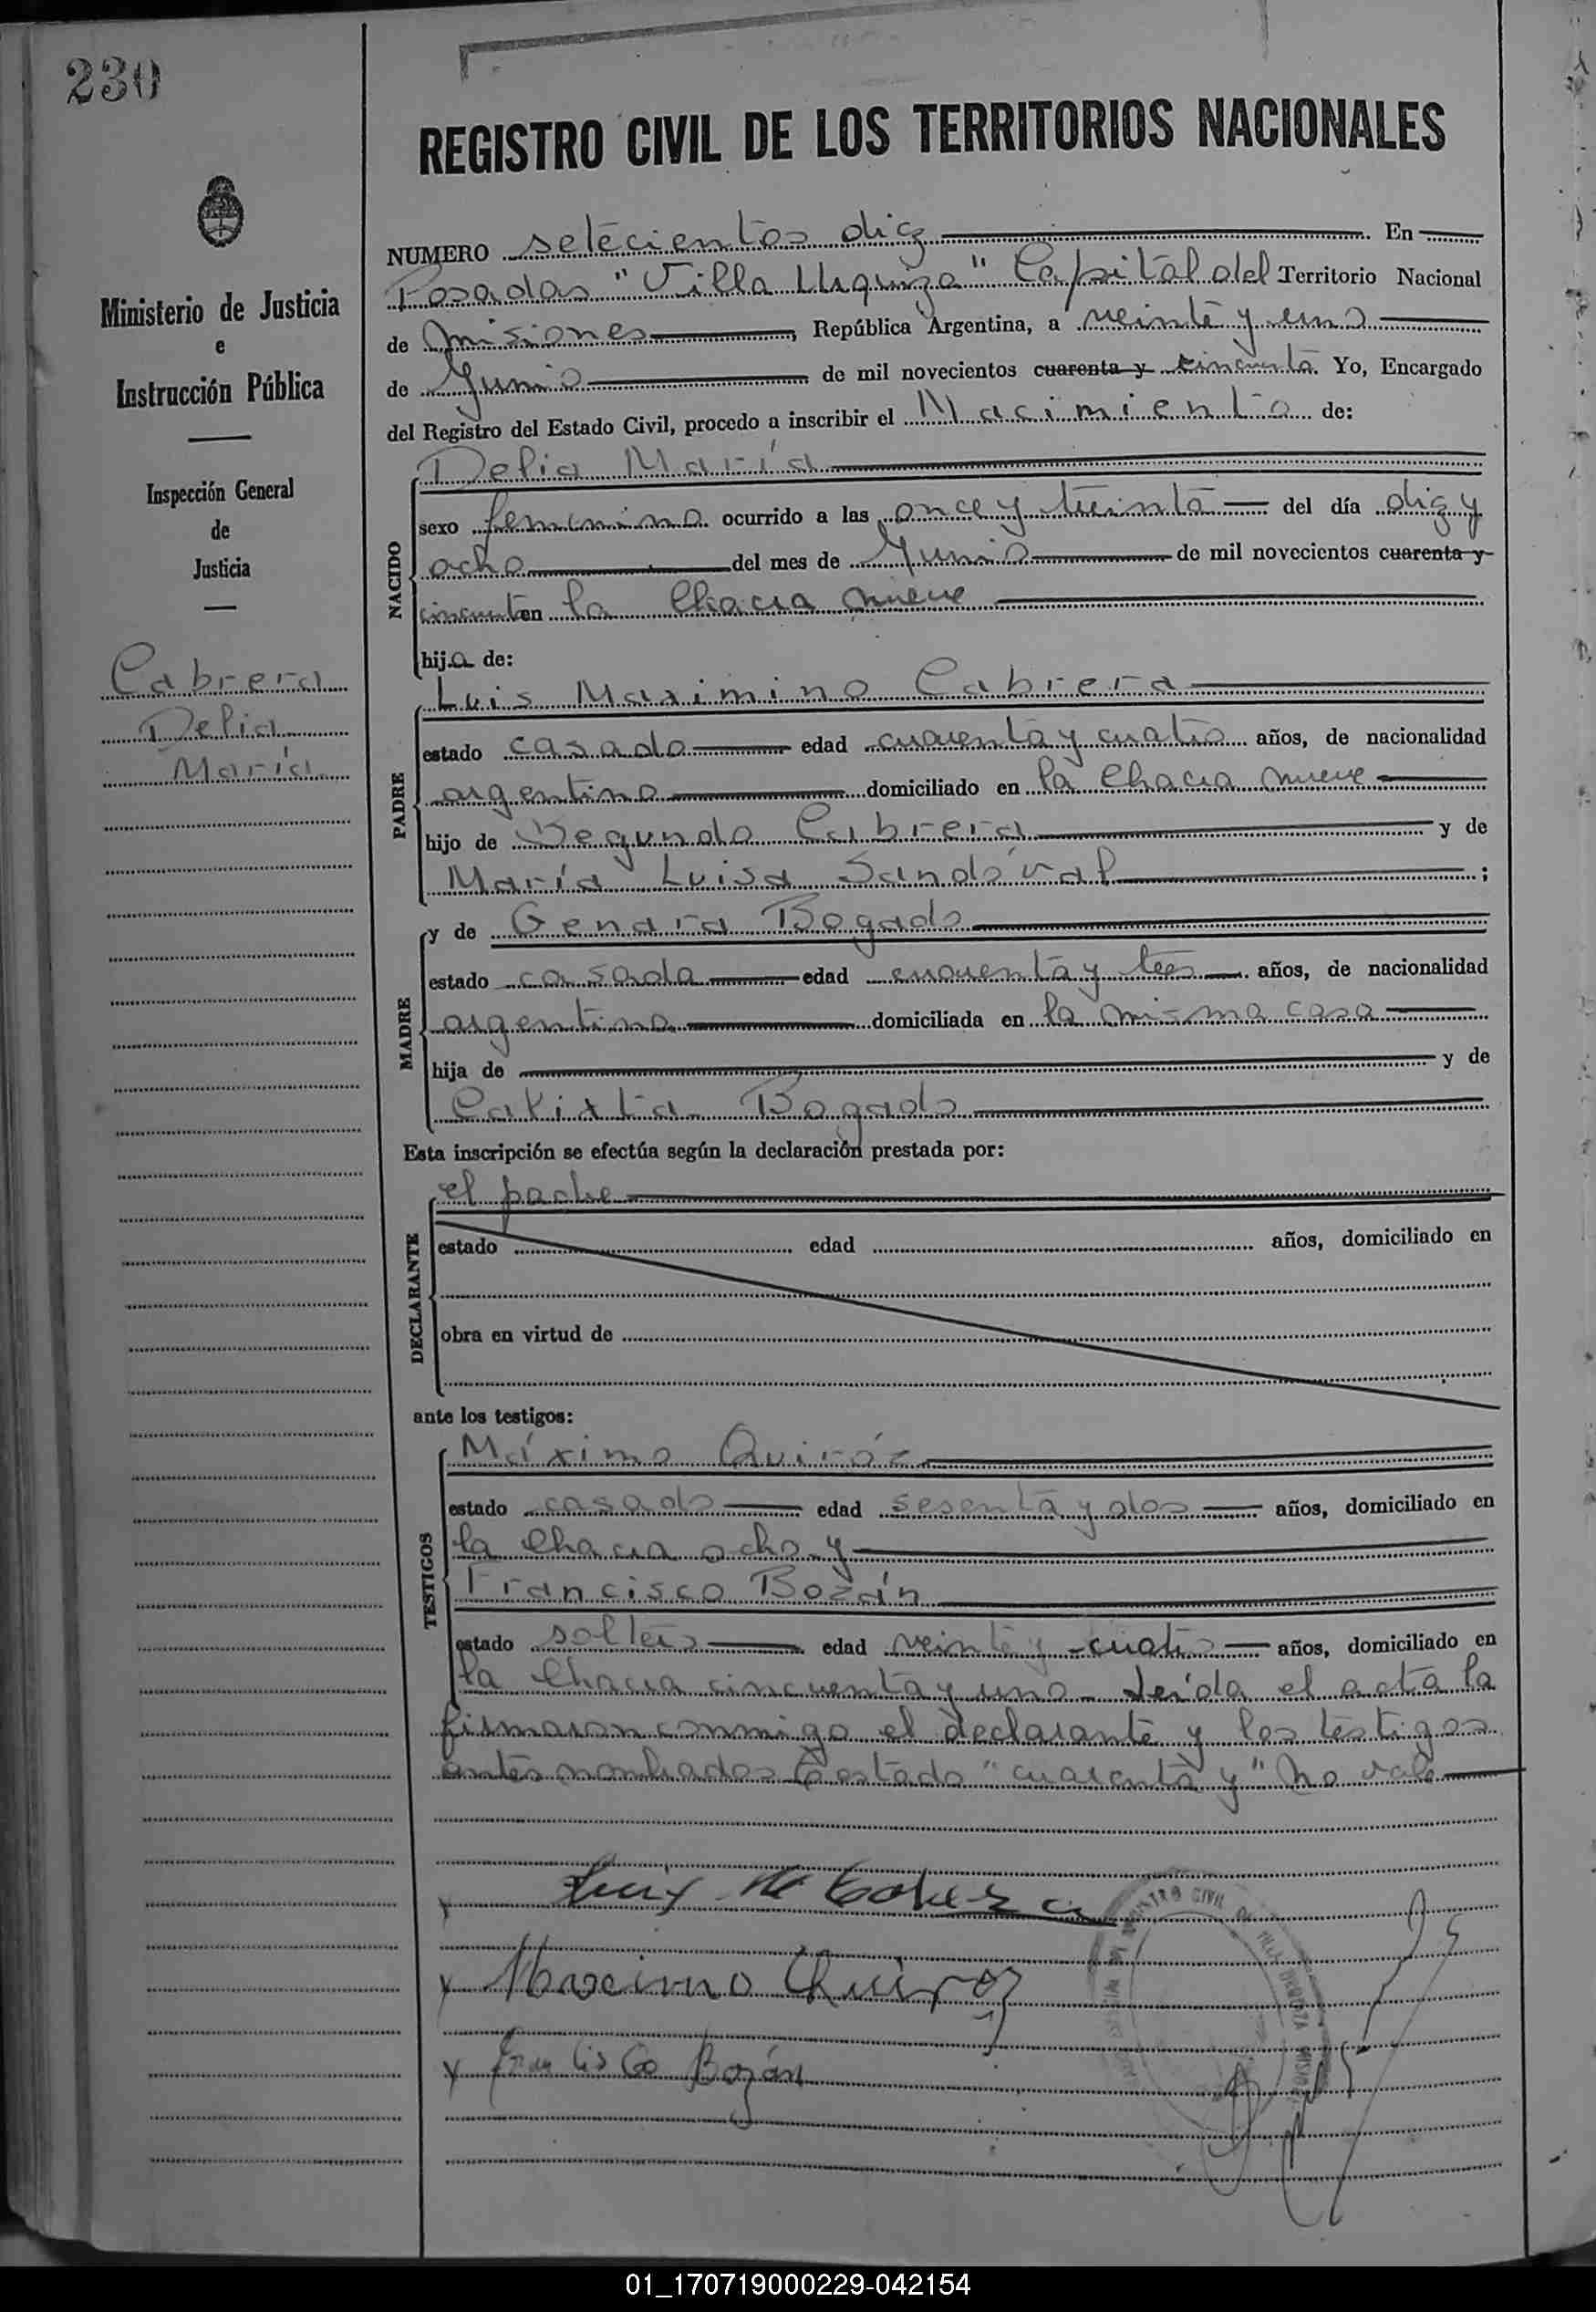 230
REGISTRO CIVIL DE LOS TERRITORIOS NACIONALES
Ministerio de Justicia
e
Instrucción Pública
Inspección General
de
Justicia
Cabrera
Delia
María
NUMERO setecientos diez En
Posadas "Villa Urquiza" Capital del Territorio Nacional
de Misiones, República Argentina, a veinte y uno
de Junio de mil novecientos cuarenta y cincuenta. Yo, Encargado
del Registro del Estado Civil, procedo a inscribir el Nacimiento de:
Delia María
NACIDO
sexo femenino ocurrido a las once y treinta del día diez y
ocho del mes de Junio de mil novecientos cuarenta y
cincuenta en la Chacra nueve
hija de:
Luis Maximino Cabrera
PADRE
estado casado edad cuarenta y cuatro años, de nacionalidad
argentino domiciliado en la Chacra nueve
hijo de Segundo Cabrera y de
María Luisa Sandóval;
y de Genara Bogado
MADRE
estado casada edad cuarenta y tres años, de nacionalidad
argentina domiciliada en la misma casa
hija de y de
Calixta Bogado
Esta inscripción se efectúa según la declaración prestada por:
el padre
DECLARANTE
estado edad años, domiciliado en
obra en virtud de
ante los testigos:
Máximo Quiróz
TESTIGOS
estado casado edad sesenta y dos años, domiciliado en
la Chacra ocho y
Francisco Bozán
estado soltero edad veinte y cuatro años, domiciliado en
la Chacra cincuenta y uno - Leída el acta la
firmaron conmigo el declarante y los testigos
antes nombrados testado "cuarenta y" No vale
Luis M Cabrera
x Maximo Quiroz
x Francisco Bozán
REGISTRO CIVIL DE VILLA URQUIZA
01_170719000229-042154